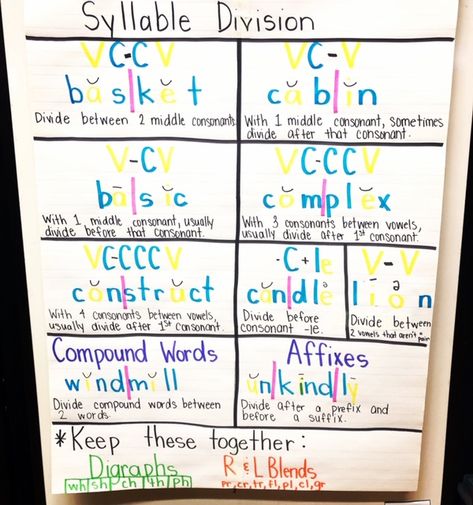 Syllable Division
VC-CV
băs|kĕt
Divide between 2 middle consonants.
VC-V
căb|ĭn
With 1 middle consonant, sometimes
divide after that consonant.
V-CV
bā|sĭc
With 1 middle consonant, usually
divide before that consonant.
VC-CCV
cŏm|plĕx
With 3 consonants between vowels,
usually divide after 1st consonant.
VC-CCCV
cŏn|strŭct
With 4 consonants between vowels,
usually divide after 1st consonant.
-C+le
căn|dle
Divide before
consonant -le.
V-V
lī|ən
lion
Divide between
2 vowels that aren't a pair
Compound Words
wĭnd|mĭll
Divide compound words between
2 words.
Affixes
ŭn/kīnd/ly
Divide after a prefix and
before a suffix.
*Keep these together:
Digraphs
wh sh ch th ph
R & L Blends
pr, cr, tr, fl, pl, cl, gr